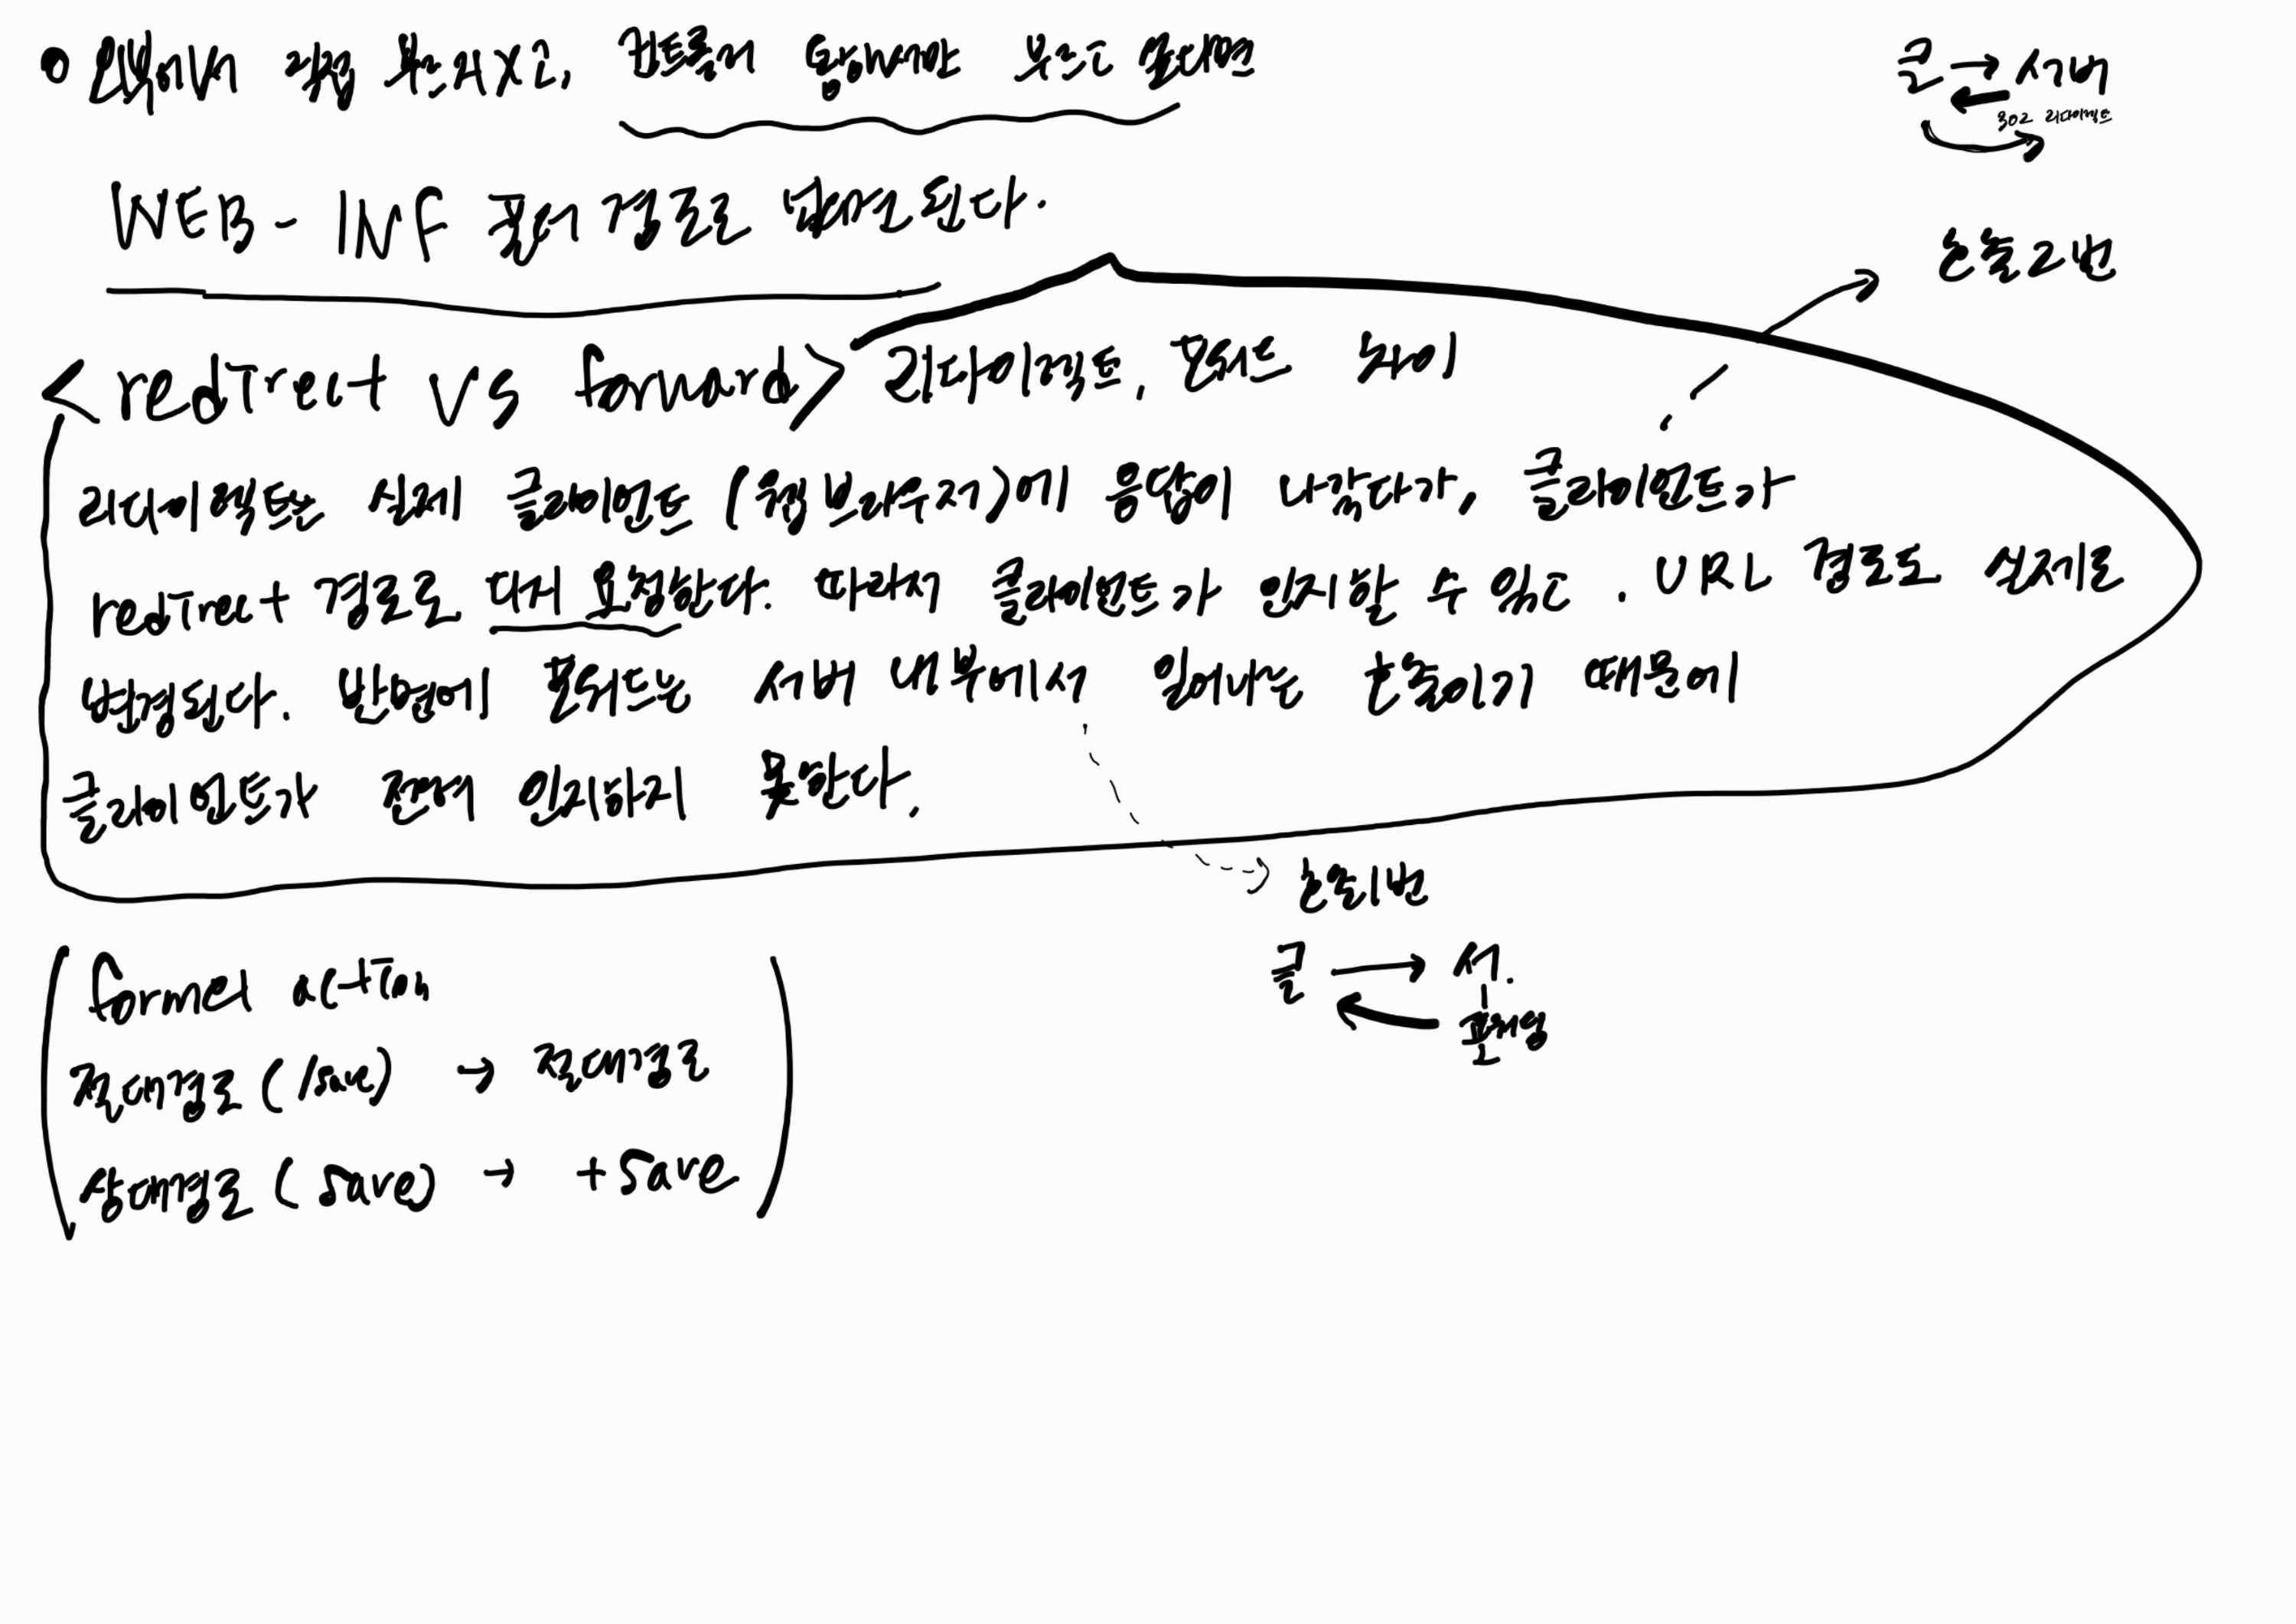 외부에서 직접 부르지 않고, 컨트롤러 통해서만 부르고 싶다면
클 → 서버
302 리다이렉트
WEB-INF 폴더 경로로 넣으면 된다.
호출 2번
<redirect vs forward> 리다이렉트, 포워드 차이
리다이렉트는 실제 클라이언트 (웹 브라우저)에 응답이 나갔다가, 클라이언트가
redirect 경로로 다시 요청한다. 따라서 클라이언트가 인지할 수 있고. URL 경로도 실제로
변경된다. 반면에 포워드는 서버 내부에서 일어나는 호출이기 때문에
클라이언트가 전혀 인지하지 못한다.
호출 1번
클 → 서.
포워딩
form의 action
절대경로 (/save) → 절대경로
상대경로 (save) → +save